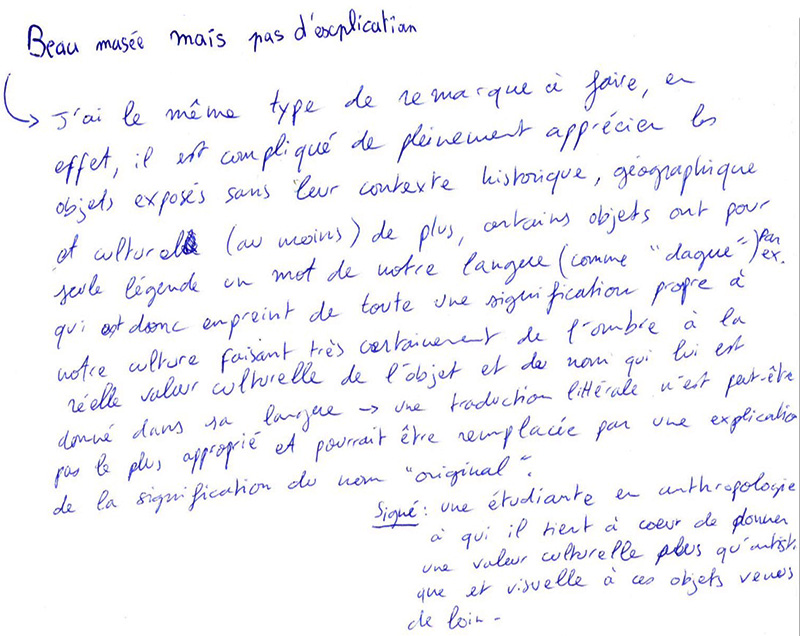 Beau musée mais pas d'explication
→ J'ai le même type de remarque à faire, en
effet, il est compliqué de pleinement apprécier les
objets exposés sans leur contexte historique, géographique
et culturel (au moins) de plus, certains objets ont pour
seule légende un mot de notre langue (comme "dague") par ex.
qui est donc empreint de toute une signification propre à
notre culture faisant très certainement de l'ombre à la
réelle valeur culturelle de l'objet et du nom qui lui est
donné dans sa langue → une traduction littérale n'est peut-être
pas le plus approprié et pourrait être remplacée par une explication
de la signification du nom "original".
Signé : une étudiante en anthropologie
à qui il tient à coeur de donner
une valeur culturelle plus qu'artisti
que et visuelle à ces objets venus
de loin -